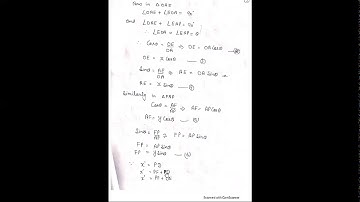 Since in Δ OAE
∠OAE + ∠EOA = 90°
and ∠OAE + ∠EAP = 90°
∴ ∠EOA = ∠EAP = θ
∴ Cosθ = OE/OA ⇒ OE = OA Cosθ
OE = x Cosθ — ①
Sinθ = AE/OA ⇒ AE = OA Sinθ
AE = x Sinθ
Similarly in Δ FAP
Cosθ = AF/AP ⇒ AF = AP Cosθ
AF = y Cosθ
Sinθ = FP/AP ⇒ FP = AP Sinθ
FP = AP Sinθ
FP = y Sinθ
∴ x' = PQ
Scanned with CamScanner